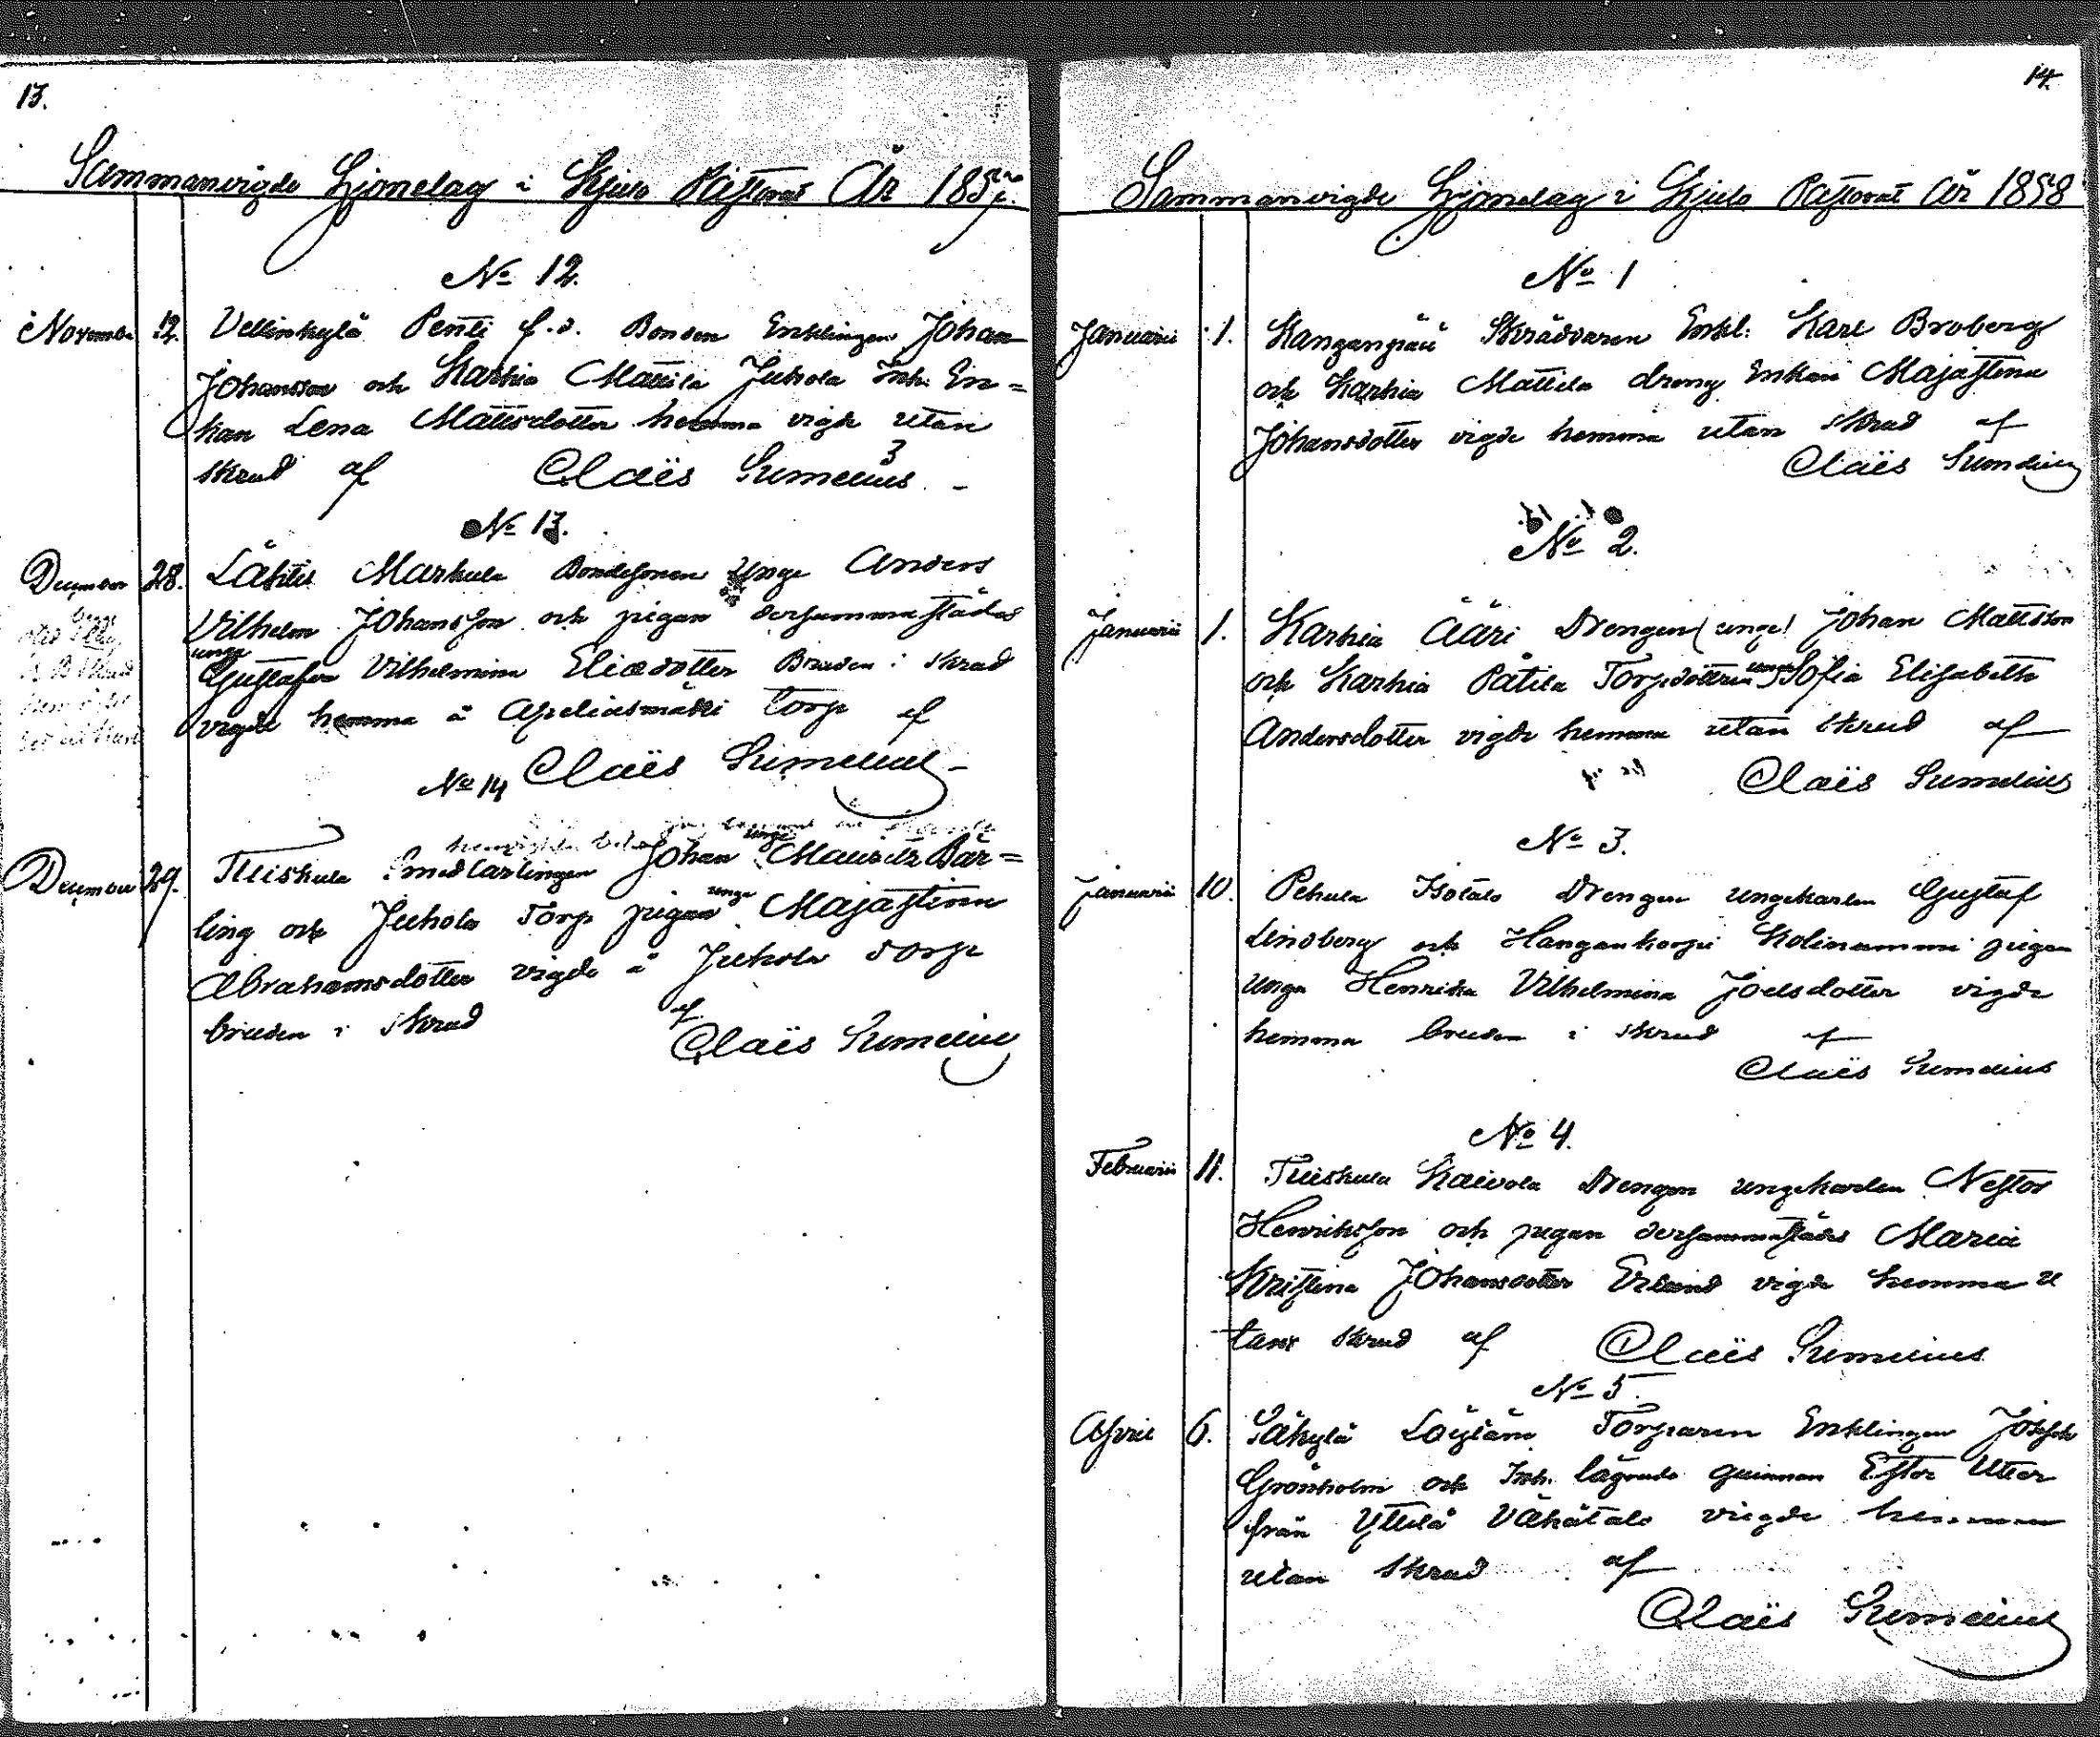 13.
Sammanvigde Hjonelag i Kjulo Pastorat År 1857.
No 12.
November 12. Vellinkylä Pentti f.d. Bonden Enklingen Johan
Johansson och Karhia Mattila Juhola Inh. En=
kan Lena Mattsdotter hemma vigde utan
skrud af Claës Sumelius
No 13.
December 28. Lähtis Markula Bondesonen unge Anders
Vilhelm Johansson och pigan dersammastädes
unga
Gustafva Vilhelmina Eliædotter Bruden i skrud
vigde hemma å torp af
Claës Sumelius
No 14
unge
December 29. Tuiskula Johan Mauritz Bär=
unga
ling och Juhola Torp pigan Majastina
Abrahamsdotter vigde å Juhola torp
bruden i skrud af
Claës Sumelius
14.
Sammanvigde Hjonelag i Kjulo Pastorat År 1858
No 1
Januarii 1. Kanganpää Skräddaren Enkl: Karl Broberg
och Karhia Mattila dreng Enkan Majastina
Johansdotter vigde hemma utan skrud af
Claës Sumelius
No 2.
Januarii 1. Karhia Ääri Drengen (unge) Johan Mattsson
och Karhia Pätila Torpdottren unga Sofia Elisabeth
Andersdotter vigde hemma utan skrud af
Claës Sumelius
No 3.
Januarii 10. Pehula Isotalo Drengen ungekarlen Gustaf
Lindberg och Hangankorpi Kolinummi pigan
unga Henrika Vilhelmina Joelsdotter vigde
hemma bruden i skrud af
Claës Sumelius
No 4.
Februarii 11. Tuiskula Kaivola Drengen ungekarlen Nestor
Henriksson och pigan dersammastädes Maria
Kristina Johansdotter Erlund vigde hemma u
tan skrud af Claës Sumelius
No 5.
April 6. Säkylä Löytäne Torparen Enklingen Joseph
Grönholm och Inh. lägrade quinnan Ester Utter
från Yttilä Vähätalo vigde hemma
utan skrud af
Claës Sumelius